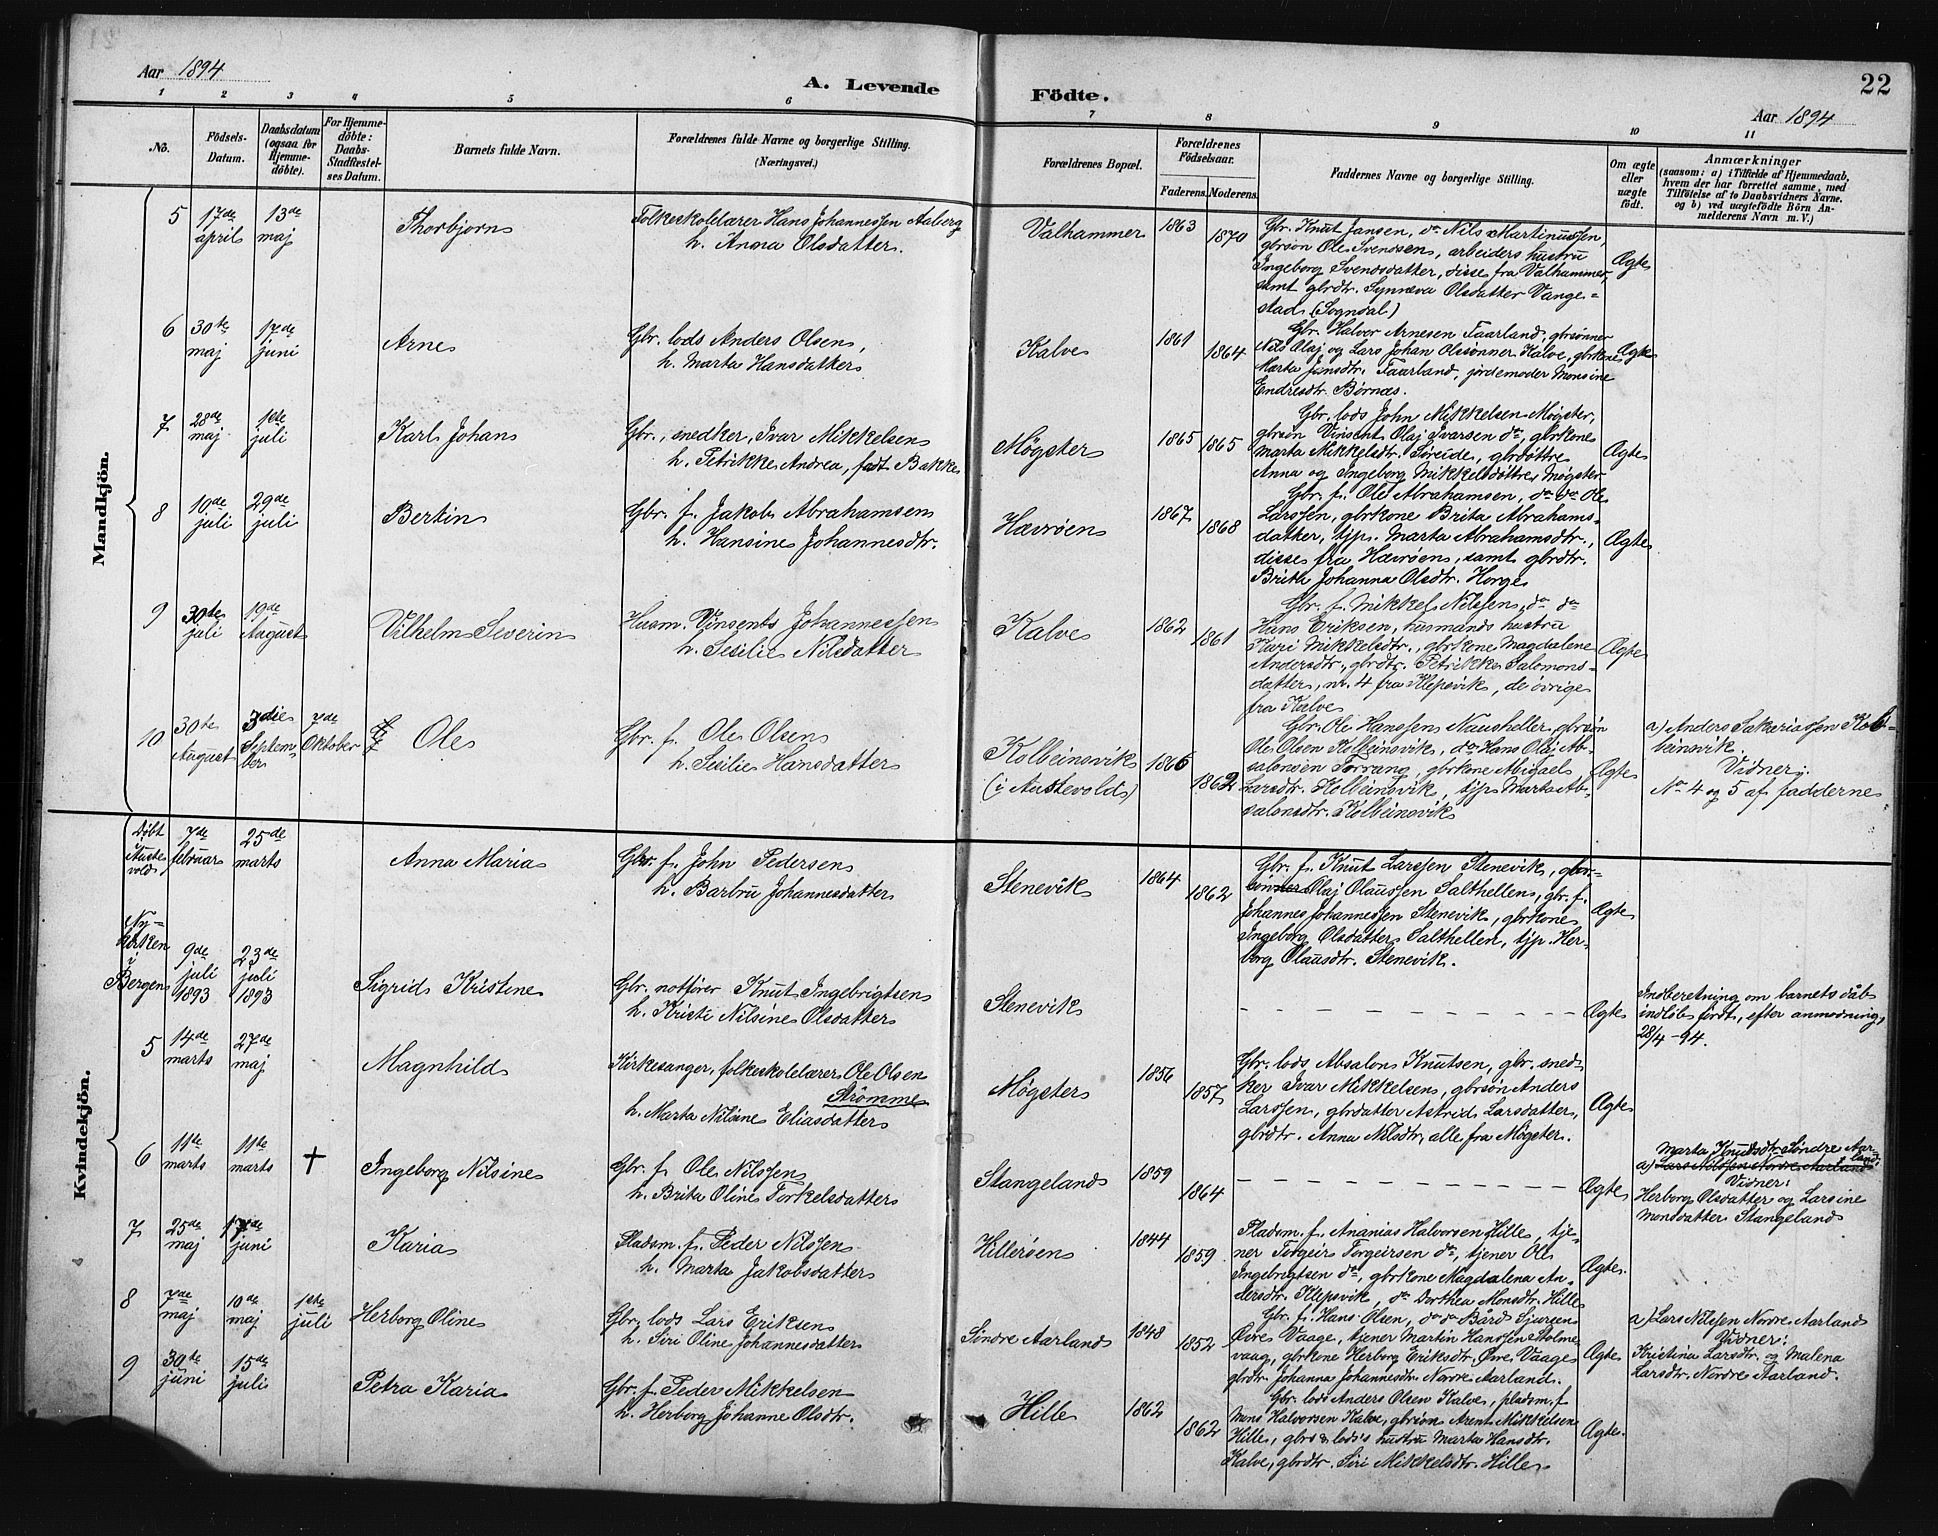 22
Aar 1894
A. Levende Födte.
Aar 1894
1 2 3 4 5 6 7 8 9 10 11
No.
Födsels-
Datum.
Daabsdatum
(ogsaa for
Hjemme-
döbte).
For Hjemme-
döbte:
Daabs-
Stadfæstel-
ses Datum.
Barnets fulde Navn.
Forældrenes fulde Navne og borgerlige Stilling.
(Næringsvei.)
Forældrenes Bopæl.
Forældrenes
Födselsaar.
Faderens. Moderens.
Faddernes Navne og borgerlige Stilling.
Om ægte
eller
uægte
födt.
Anmærkninger
(saasom: a) i Tilfælde af Hjemmedaab,
hvem der har forrettet samme, med
Tilföielse af to Daabsvidners Navne.
og b) ved uægtefödte Börn An-
melderens Navn m. V.)
Mandkjön.
5
17de
april
13de
maj
Thorbjørn
Folkeskolelærer Hans Johannessen Aaberg
h. Anna Olsdatter.
Valhammer
1863
1870
Gbr. Knut Jansen, do Nils Martinussen,
gbrsøn Ole Svendsen, arbeiders hustru
Ingeborg Svendsdatter, disse fra Valhammer,
samt gbrdtr. Synneva Olsdatter Vange-
stad (Sogndal)
Ægte
6
30te
maj
17de
juni
Arne
Gbr. lods Anders Olsen,
h. Marta Hansdatter
Kalve
1861
1864
Gbr. Halvor Arnesen Taarland, gbrsønner
Nils Olaj og Lars Johan Olssønner Kalve, gbrkone
Marta Jansdtr. Taarland, jordemoder Monsine
Endresdtr Børnæs.
Ægte
7
28de
maj
1ste
juli
Karl Johan
Gbr., snedker, Ivar Mikkelsen
h. Petrikke Andrea, født Bakke
Møgster
1865
1865
Gbr. lods John Mikkelsen Møgster,
gbrsøn Vinsent Olaj Ivarsen do, gbrkone
Marta Mikkelsdtr. Søreide, gbrdøttre
Anna og Ingeborg Mikkelsdøttre Møgster
Ægte
8
10de
juli
29de
juli
Bertin
Gbr. f. Jakob Abrahamsen
h. Hansine Johannesdtr.
Hævrøen
1867
1868
Gbr. f. Ole Abrahamsen, do do Ole
Larssen, gbrkone Brita Abrahams-
datter, tjp. Marta Abrahamsdtr.,
disse fra Hævrøen, samt gbrdtr.
Brith Johanna Olsdtr. Horge
Ægte
9
30te
juli
19de
August
Vilhelm Severin
Husm. Vinsents Johannessen
h. Sesilie Nilsdatter
Kalve
1862
1861
Gbr. f. Mikkel Nilssen, do do
Hans Eriksen, husmands hustru
Kari Mikkelsdtr., gbrkone Magdalene
Andersdtr., gbrdtr. Petrikke Salomons-
datter, nr. 4 fra Klepsvik, de övrige
fra Kalve
Ægte
10
30te
August
3die
Septem-
ber
7de
Oktober
Ole
Gbr. f. Ole Olsen
h. Sesilie Hansdatter
Kolbeinsvik
(i Austevold)
1866
1862
Gbr. Ole Hanssen Naushella, gbrsøn
Ole Olsen Kolbeinsvik, do Hans Olaj Ab-
salonsen Torrang, gbrkone Abigael
Larsdtr. Kolbeinsvik, tjp Marta Ab-
salonsdtr. Kolbeinsvik
Ægte
a) Anders Sakariassen Kol-
beinsvik.
Vidner:
No 4 og 5 af fadderne
Kvindekjön.
Døbt
Auste
vold
7de
februar
25de
marts
Anna Maria
Gbr. f. John Pedersen
h. Barbru Johannesdatter
Stenevik
1864
1862
Gbr. f. Knut Larssen Stenevik, gbr-
søn Olaj Olaussen Salthellen, gbr. f.
Johannes Johannessen Stenevik, gbrkone
Ingeborg Olsdatter Salthellen, tjp. Her-
borg Olausdtr. Stenevik.
Ægte
Ny-
kirken
i
Bergen
9de
juli
1893
23de
juli
1893
Sigrid Kristine
Gbr. notfører Knut Ingebrigtsen
h. Kristi Nilsine Olsdatter
Stenevik
Ægte
Indberetning om barnets dåb
indløb først, efter anmodning,
28/4 - 94.
5
14de
marts
27de
maj
Magnhild
Kirkesanger, folkeskolelærer Ole Olsen
Strømme
h. Marta Nilsine Eliasdatter
Møgster
1856
1857
Gbr. lods Absalon Knutsen, gbr. sned-
ker Ivar Mikkelsen, gbrsøn Anders
Larssen, gbrdatter Astrid Larsdatter,
gbrdtr. Anna Nilsdtr, alle fra Møgster.
Ægte
6
11te
marts
11te
marts
†
Ingeborg Nilsine
Gbr. f. Ole Nilssen
h. Brita Oline Torkelsdatter
Stangeland
1859
1864
Ægte
Marta Knutsdtr Søndre Aar-
land.
a) Lars Nilssen Nordre Aarland
Vidner:
Herborg Olsdatter og Larsine
Monsdatter Stangeland
7
25de
maj
17de
juni
Karia
Pladsm. f. Peder Nilssen
h. Marta Jakobsdatter
Hillersøen
1844
1859
Pladsm. f. Ananias Halvorsen Hille, tje-
ner Torgeir Torgeirsen do, tjener Ole
Ingebrigtsen do, gbrkone Magdalena An-
dersdtr. Klepsvik, do Dorthea Monsdtr. Hille
Ægte.
8
7de
maj
10de
maj
1ste
juli
Herborg Oline
Gbr, lods Lars Eriksen
h. Siri Oline Johannesdatter
Søndre Aarland
1848
1852
Gbr. f. Hans Olsen, do do Bård Sjursen
Øvre Vaage, tjener Martin Hanssen Stolme-
vaag, gbrkone Herborg Eriksdtr. Øvre Vaage
gbrdtr. Johanna Johannesdtr. Nordre Aarland.
Ægte
a) Lars Nilssen Nordre Aarland
Vidner:
Kristina Larsdtr. og Malena
Larsdtr. Nordre Aarland.
9
30te
juni
15de
juli
Petra Karia
Gbr. f. Peder Mikkelsen
h. Herborg Johanne Olsdtr.
Hille
1862
1862
Gbr. lods Anders Olsen Kalve, pladsm. f.
Mons Halvorsen Kalve, gbrsøn Arent Mikkelsen
Hille, gbrs & lods's hustru Marta Hansdtr.
Kalve, gbrdtr. Siri Mikkelsdtr. Hille
Ægte.